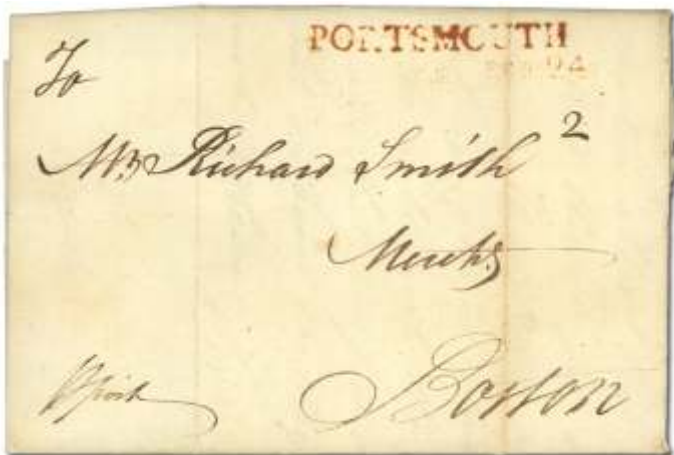 PORTSMOUTH
24
To
2
Mr Richard Smith
Mercht
Boston